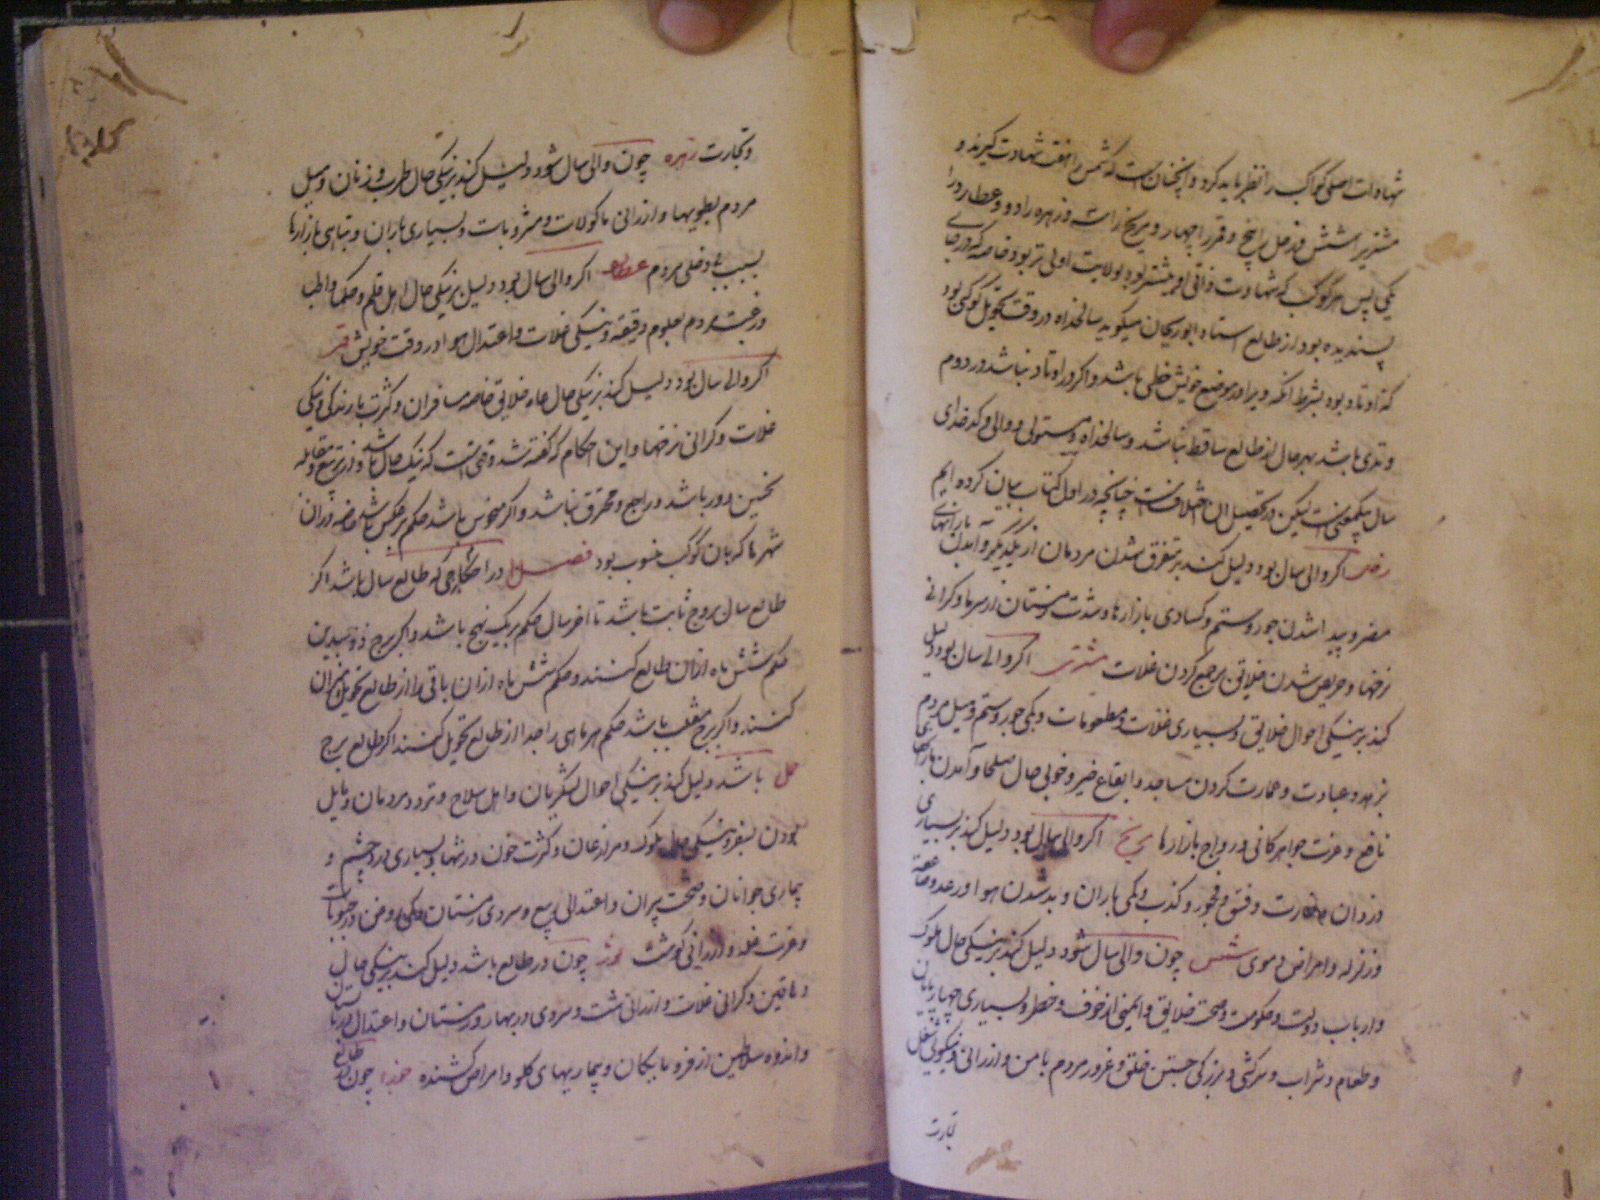 شهادات اصلی کواکب را نظر باید کرد و آنچنان است که شمس را هفت شهادت گیرند و
مشتری را شش و زحل را پنج و قمر را چهار و مریخ را سه و زهره را دو و عطارد را
یکی پس هر کوکب که شهادت ذاتی او بیشتر بود بولایت اولی تر بود خاصه که در جای
پسندیده بود از طالع استاد ابوریحان میگوید سالخداه در وقت تحویل کوکبی بود
که در اوتاد بود بشرط آنکه ویرا در موضع خویش حظی باشد و اگر در اوتاد نباشد در دوم
وتدی باشد بهر حال از طالع ساقط نباشد و سالخداه و مستولی و والی و کدخدای
سال بیکمعنی است لیکن در تحصیل آن اختلافست چنانچه در اول کتاب بیان کرده ایم
زحل اگر والی سال بود دلیل کند بر متفرق شدن مردمان از یکدیگر و آمدن بارانهای
مضر و پیدا شدن جور و ستم و کسادی بازارها و شدت زمستان از سرما و گرانی
نرخها و حریص شدن خلایق بر جمع کردن غلات مشتری اگر والی سال بود دلیل
کند بر نیکی احوال خلایق و بسیاری غلات و مطعومات و کمی جور و ستم و میل مردم
بزهد و عبادت و عمارت کردن مساجد و ابقاع خیر و خوبی حال صلحا و آمدن بارانها
نافع و عزت جواهر کانی و رواج بازارها مریخ اگر والی سال بود دلیل کند بر بسیاری
دزدان و فسق و فجور و کذب و کمی باران و بد شدن هوا و رعد و صاعقه
و زلزله و امراض دموی شمس چون والی سال شود دلیل کند بر نیکی حال ملوک
و ارباب دولت و حکومت و صحت خلایق و ایمنی از خوف و خطر و بسیاری چهارپایان
و طعام و شراب و سرکشی و بزرگی جستن خلق و غرور مردم بامن و ارزانی و نیکویی شغل
تجارت
و تجارت زهره چون والی سال شود دلیل کند بر نیکی حال طرب و زنان و میل
مردم بطویها و ارزانی ماکولات و مشروبات و بسیاری باران و تباهی بازارها
بسبب مردم عطارد اگر والی سال بود دلیل نیکی حال اهل قلم و حکما و اطبا
و رغبت مردم بعلوم دقیقه و نیکی غلات و اعتدال هوا در وقت خویش قمر
اگر والی سال بود دلیل کند بر نیکی حال عامه خلایق خاصه مسافران و کثرت بارندگی و نیکی
غلات و گرانی نرخها و این احکام که گفته شد وقتی است که نیک حال باشد و از تربیع و مقابله
نحسین دور باشد و راجع و محترق نباشد و اگر منحوس باشد حکم بر عکس باشد خاصه در آن
شهرها که بآن کوکب منسوب بود فصل در احکام برجی که طالع سال باشد اگر
طالع سال بروج ثابت باشد تا آخر سال حکم بر یک نهج باشد و اگر برج ذو جسدین
حکم شش ماه ازان طالع کنند و حکم شش ماه ازان باقی را از طالع تحویل میزان
کنند و اگر برج منقلب باشد حکم هر ماهی را جدا از طالع تحویل کنند اگر طالع برج
حمل باشد دلیل کند بر نیکی احوال لشکریان و اهل سلاح و تردد مردمان و مایل
بودن بسفر و نیکی حال ملوک و مزارعان و کثرت خون در تنها و بسیاری درد چشم و
بیماری جوانان و صحت پیران و اعتدالی ربیع و سردی زمستان و کمی روغن و حبوبات
و عزت غله و ارزانی گوشت ثور چون در طالع باشد دلیل کند بر نیکی حال
دهاقین و گرانی غلات و ارزانی و سردی در بهار و زمستان و اعتدال در تابستان
و اندوه سلاطین از فزه بایگان و بیماریهای گلو و امراض کشنده جوزا چون در طالع